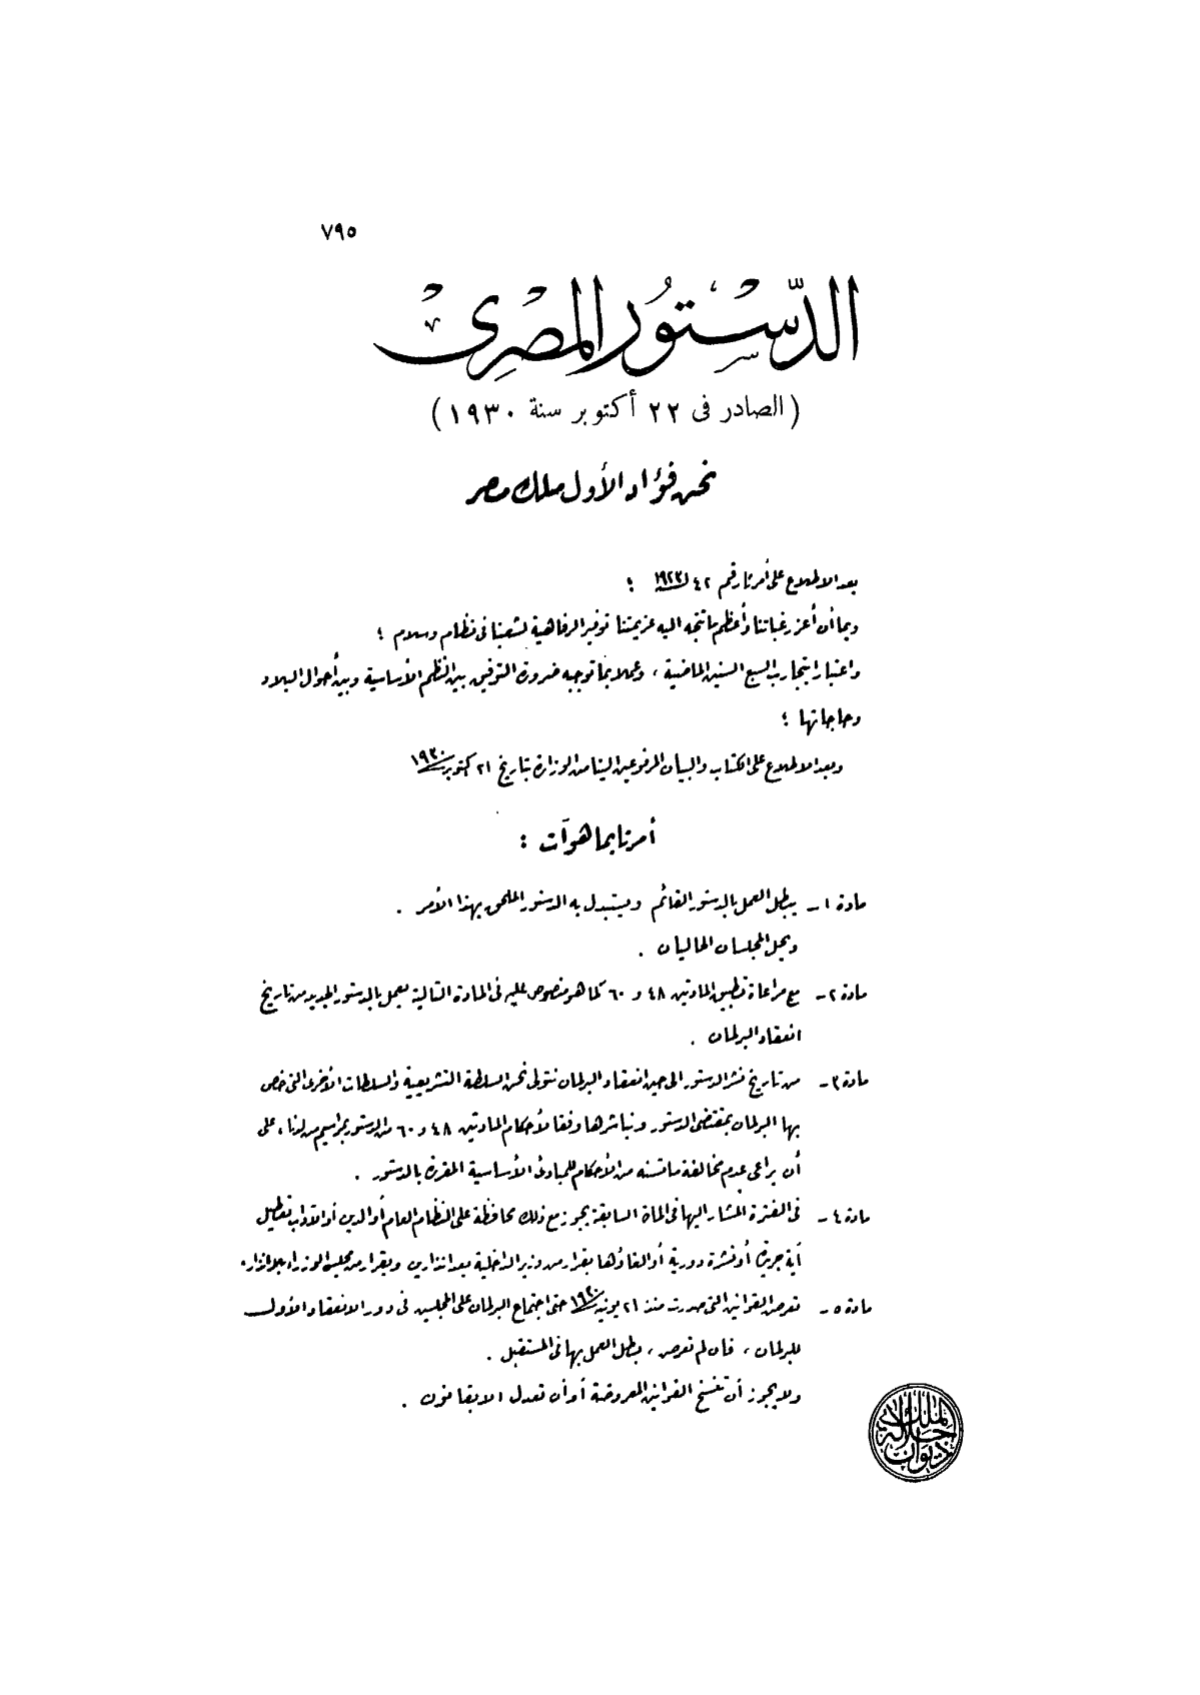 ٧٩٥
الدّستور المصرى
(الصادر فى ٢٢ أكتوبر سنة ١٩٣٠)
نحن فؤاد الأول ملك مصر
بعد الاطلاع على أمرنا رقم ٤٢ لسنة ١٩٢٣ ؛
وبما أن أعز رغباتنا وأعظم ما تتجه اليه عزيمتنا توفير الرفاهية لشعبنا فى نظام وسلام ؛
واعتبارا بتجارب السبع السنين الماضية ، وعملا بما توجبه ضرورة التوفيق بين النظم الأساسية وبين أحوال البلاد
وحاجاتها ؛
وبعد الاطلاع على الكتاب والبيان المرفوعين الينا من الوزارة بتاريخ ٢١ أكتوبر سنة ١٩٣٠
أمرنا بما هو آت :
مادة ١ ـ يبطل العمل بالدستور القائم ويستبدل به الدستور الملحق بهذا الأمر .
ويحل المجلسان الحاليان .
مادة ٢ ـ مع مراعاة تطبيق المادتين ٤٨ و ٦٠ كما هو منصوص عليه فى المادة التالية يعمل بالدستور الجديد من تاريخ
انعقاد البرلمان .
مادة ٣ ـ من تاريخ نشر الدستور الى حين انعقاد البرلمان نتولى نحن السلطة التشريعية والسلطات الأخرى التى خص
بها البرلمان بمقتضى الدستور ونباشرها وفقا لأحكام المادتين ٤٨ و ٦٠ من الدستور بمراسيم من لدنا ، على
أن يراعى عدم مخالفة ما تسنه من الأحكام للمبادئ الأساسية المقررة بالدستور .
مادة ٤ ـ فى الفترة المشار اليها فى المادة السابقة يجوز مع ذلك محافظة على النظام العام أو الدين أو الآداب تعطيل
أية جريدة أو نشرة دورية أو الغاؤها بقرار من وزير الداخلية بعد انذارين وبقرار من مجلس الوزراء بلا انذار .
مادة ٥ ـ تعرض القوانين التى صدرت منذ ٢١ يونيه سنة ١٩٣٠ حتى اجتماع البرلمان على المجلسين فى دور الانعقاد الأول
للبرلمان ، فان لم تعرض ، بطل العمل بها فى المستقبل .
ولا يجوز أن تنسخ القوانين المعروضة أو أن تعدل الا بقانون .
ديوان جلالة الملك